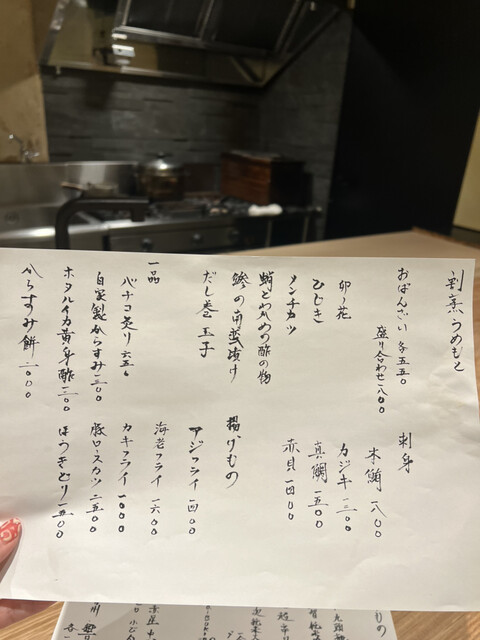 割烹うめもと
おばんざい 各五五〇
盛り合わせ一八〇〇
卯ノ花
ひじき
メンチカツ
蛸とわかめの酢の物
鯵の南蛮漬け
だし巻玉子
一品
バチコ炙り 六五〇
自家製からすみ一二〇〇
ホタルイカ黄身酢一二〇〇
からすみ餅 二〇〇〇
刺身
本鮪 一八〇〇
カジキ 一二〇〇
真鯛 一五〇〇
赤貝 一四〇〇
揚げもの
アジフライ 一四〇〇
海老フライ 一六〇〇
カキフライ 一〇〇〇
豚ロースカツ 二五〇〇
ほうきどり 一五〇〇